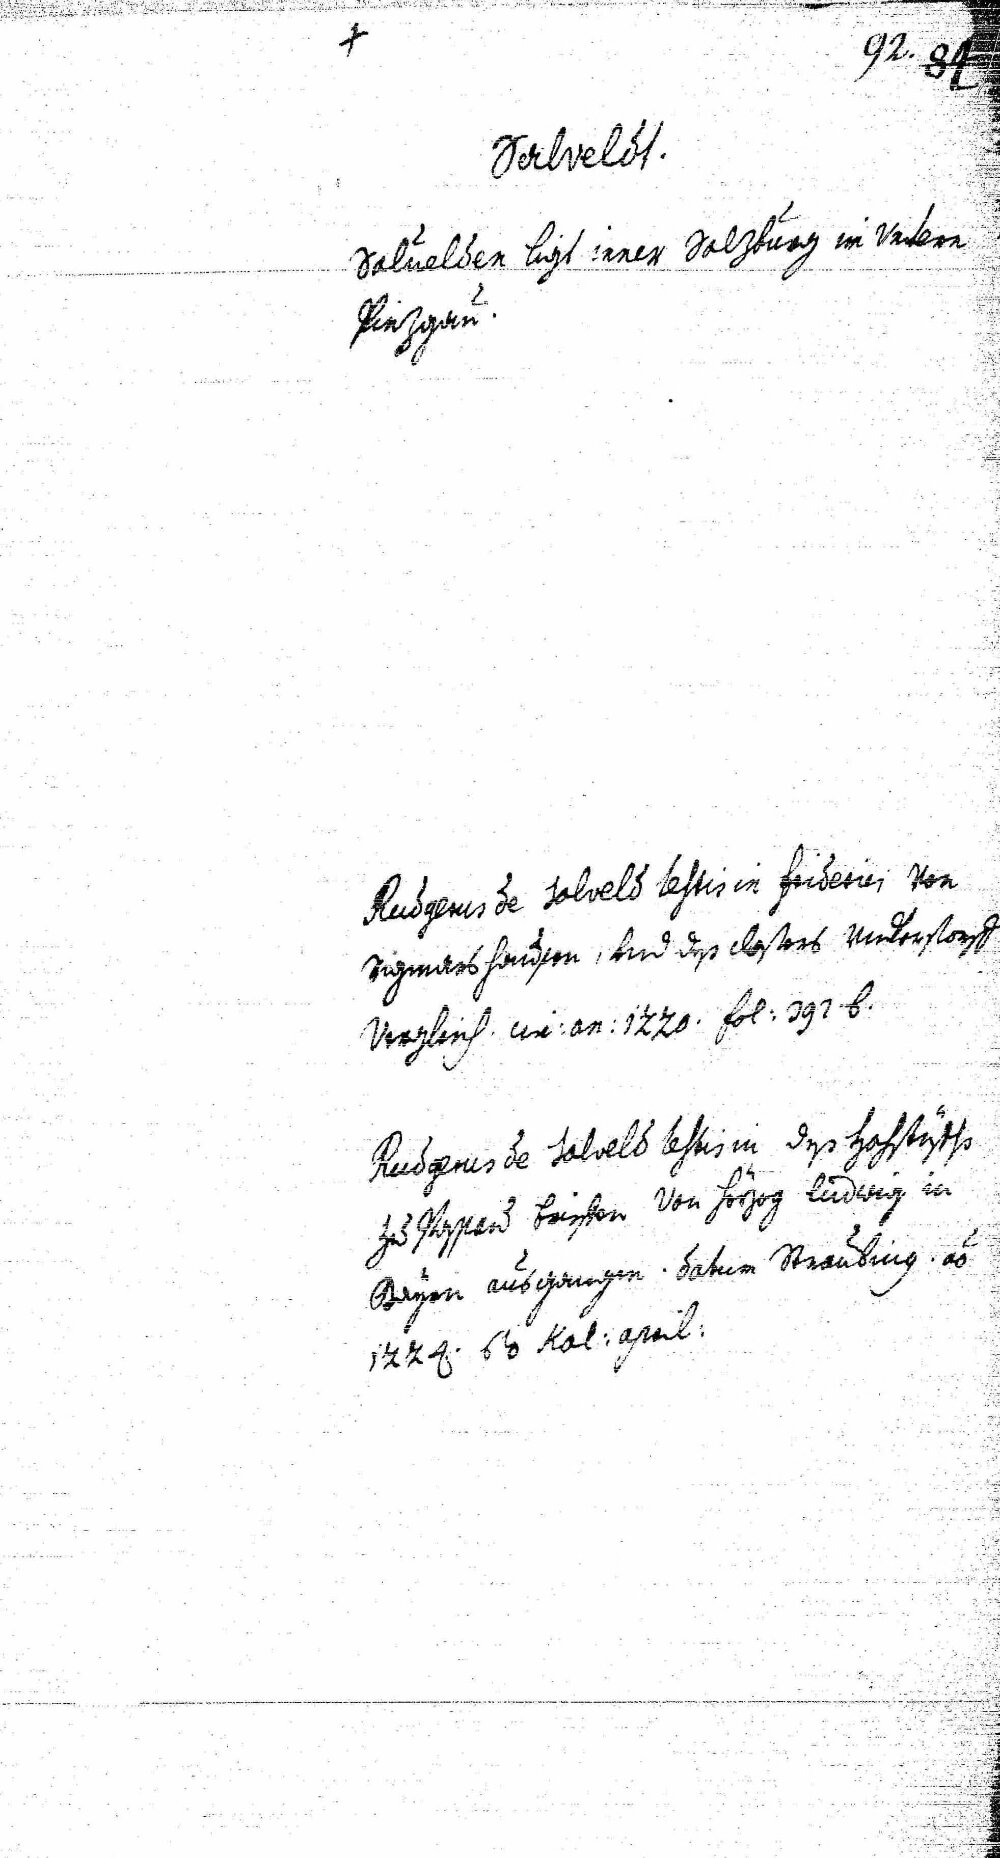 92. 84
Salveldt.
Saluelden ligt inner Salzburg im Untern
Pinzgau.
Rudgerus de Salveld testis in friderici von
Sigmarshausen, und dess closters Understorff
Vergleich. uti: an: 1220. fol: 391 b.
Rudgerus de Salveld testis in dess Hochstiffts
zu Passau brieffen von herzog Ludwig in
Bayrn ausgangen. datum Straubing. ao
1224. Kal: april: